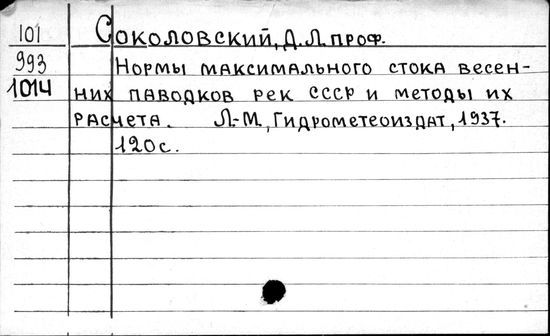 101 Соколовский, Д.Л. проф.
993 Нормы максимального стока весен-
1014 них паводков рек СССР и методы их
расчета. Л.-М., Гидрометеоиздат, 1937.
120 с.